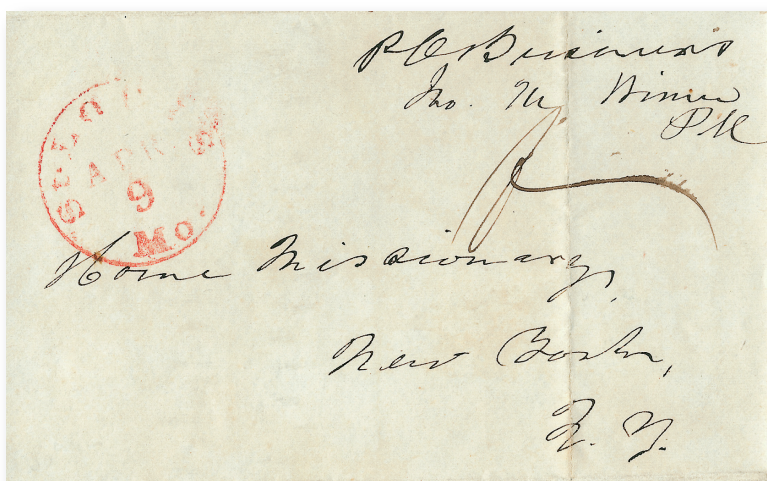 P.O. Business
Jno. M. Wimer
PM
ST. LOUIS
APR
9
Mo.
Home Missionary,
New York,
N. Y.